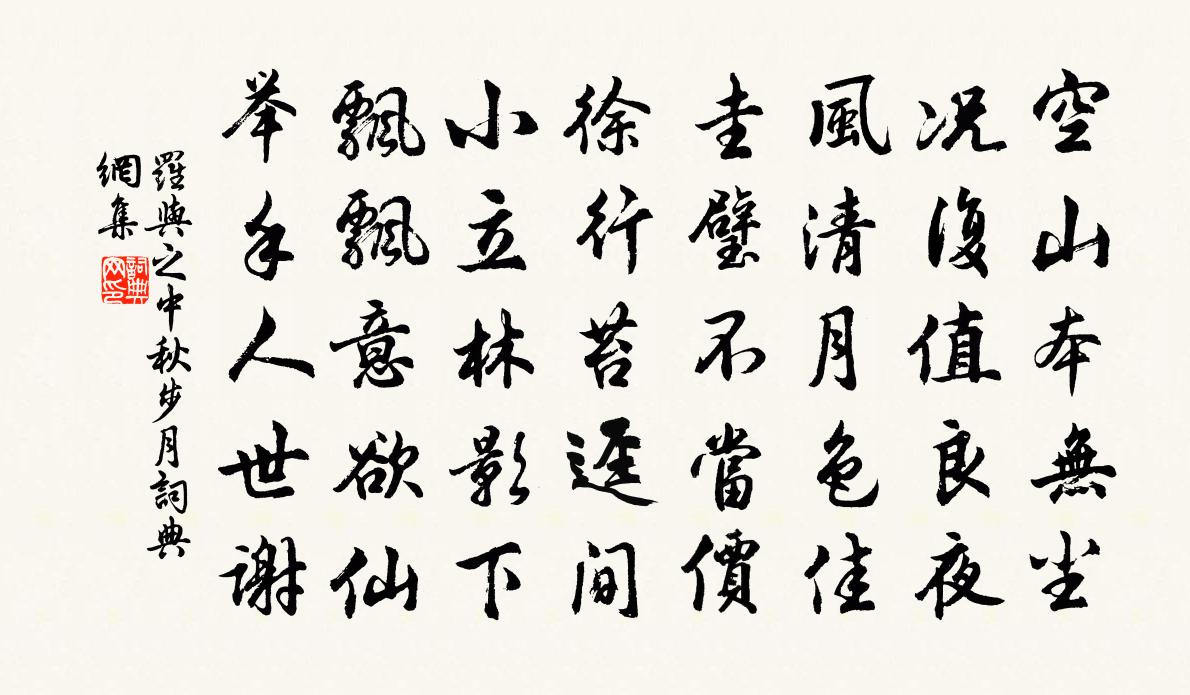 空山本無尘
况復值良夜
風清月色佳
圭璧不當價
徐行苔逕间
小立林影下
飄飄意欲仙
举手人世谢
羅與之中秋步月詞典
網集
詞典網印